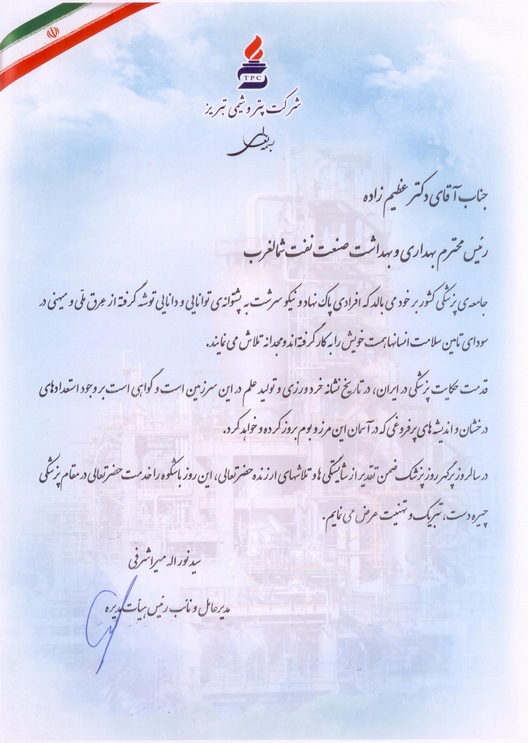 TPC
شرکت پتروشیمی تبریز
بسمه تعالی
جناب آقای دکتر عظیم زاده
رئیس محترم بهداری و بهداشت صنعت نفت شمالغرب
جامعه ی پزشکی کشور بر خود می بالد که افرادی پاک نهاد و نیکو سرشت به پشتوانه ی توانایی و دانایی توشه گرفته از عِرق ملّی و میهنی در
سودای تامین سلامت انسانها همت خویش را به کار گرفته اند و مجدانه تلاش می نمایند.
قدمت حکایت پزشکی در ایران، در تاریخ نشانه خرد ورزی و تولید علم در این سرزمین است و گواهی است بر وجود استعدادهای
درخشان و اندیشه های پرفروغی که در آسمان این مرز و بوم بروز کرده و خواهد کرد.
در سالروز پرگهر روز پزشک ضمن تقدیر از شایستگی ها و تلاشهای ارزنده حضرتعالی، این روز باشکوه را خدمت حضرتعالی در مقام پزشکی
چیره دست، تبریک و تهنیت عرض می نمایم.
سید نور اله میراشرفی
مدیرعامل و نائب رئیس هیأت مدیره